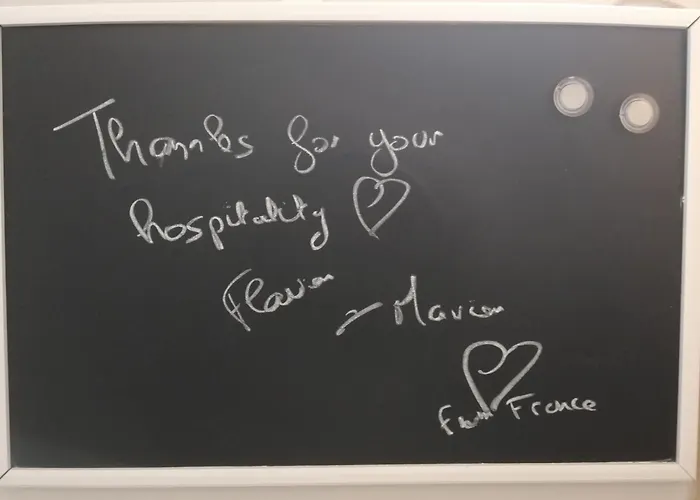 Thanks for your
hospitality ♡
Flavien - Marion
♡
from France